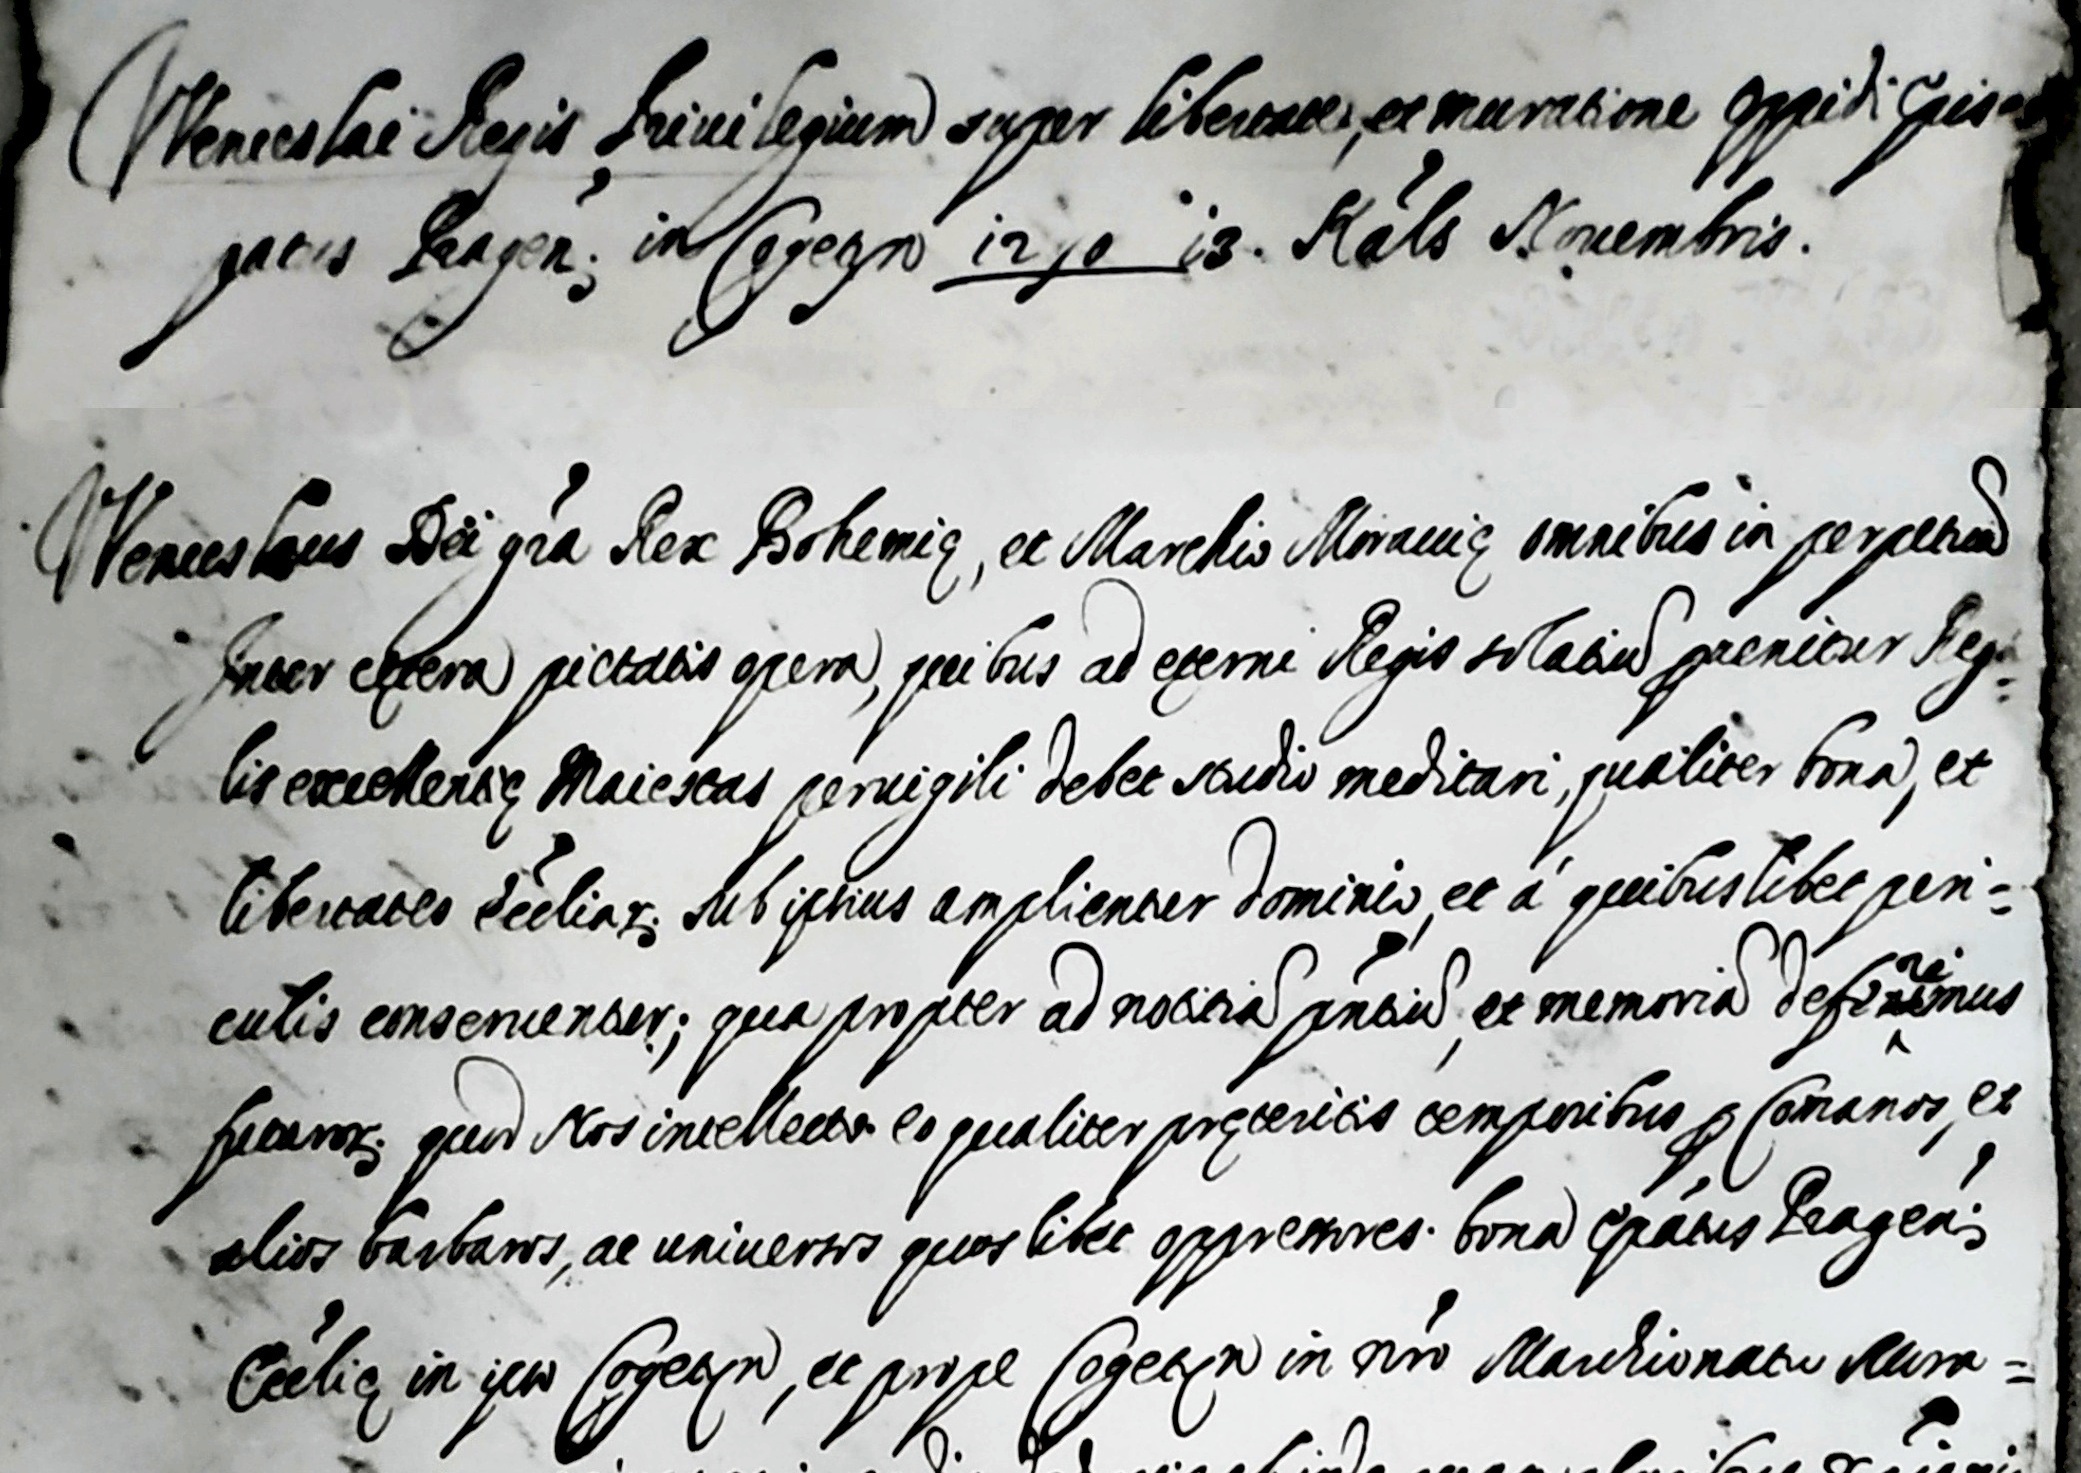 Wenceslai Regis Priuilegium super libertate, et muratione Oppidi Epis=
patus Pragen; in Cogetzn 1290 13. Kals Nouembris.
Wenceslaus Dei gra Rex Bohemię, et Marchio Morauię omnibus in perpetuū
Inter cętera pietatis opera, quibus ad ęterni Regis solatiū prenitur Rega=
lis excellentię Maiestas peruigili debet studio meditari, qualiter bona, et
libertates Eccliaꝝ sub ipsius amplientur dominio, et á quibuslibet peri=
culis conseruentur; quapropter ad notitiā pntiū, et memoriā
futuroꝝ quod Nos intellecto eo qualiter pręteritis temporibus ꝑ Comanos, et
alios barbaros, ac uniuersos quoslibet oppressores. bona Epatus Pragen;
Ecclię in ipso Cogetzn, et prope Cogetzn in nro Marchionatu Mora=